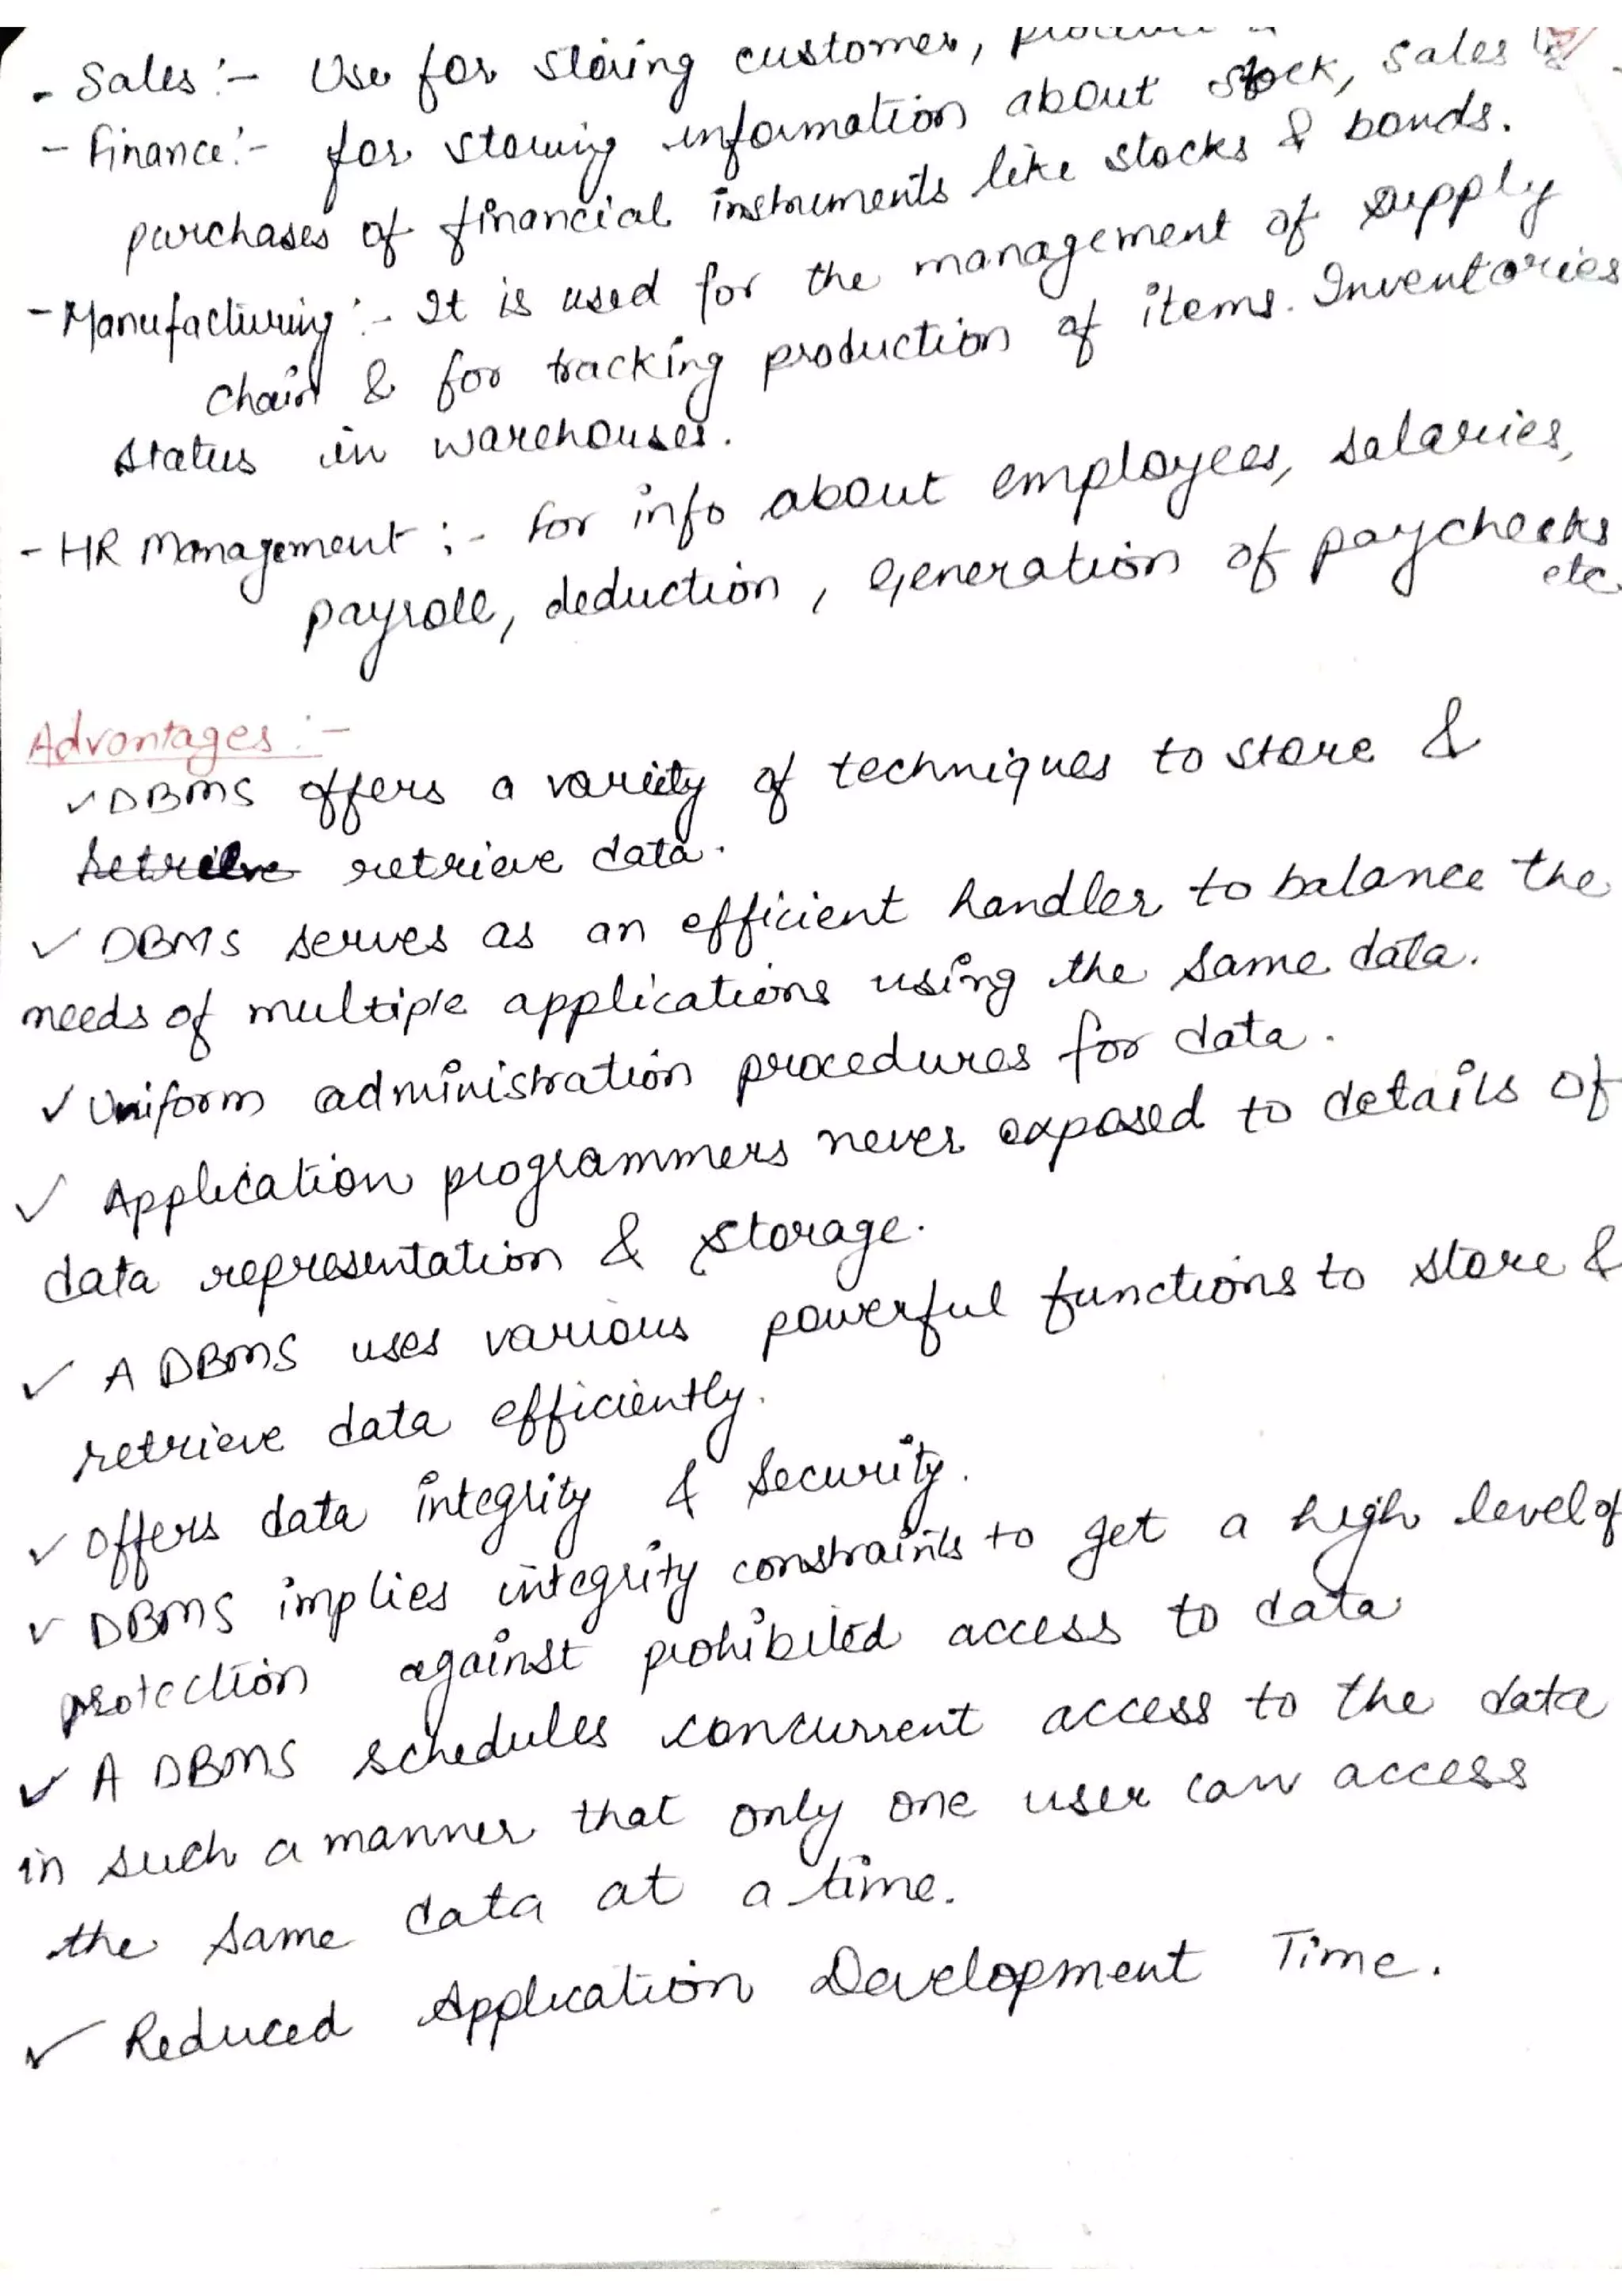 - Sales :- Use for storing customer,
- Finance :- for storing information about stock, sales &
purchases of financial instruments like stocks & bonds.
- Manufacturing :- It is used for the management of supply
chain & for tracking production of items. Inventories
status in warehouses.
- HR Management :- For info about employees, salaries,
payroll, deduction, generation of paychecks
etc
Advantages :-
✓ DBMS offers a variety of techniques to store &
retrieve data.
✓ DBMS serves as an efficient handler to balance the
needs of multiple applications using the same data.
✓ Uniform administration procedures for data.
✓ Application programmers never exposed to details of
data representation & storage.
✓ A DBMS uses various powerful functions to store &
retrieve data efficiently.
✓ Offers data integrity & security.
✓ DBMS implies integrity constraints to get a high level of
protection against prohibited access to data
✓ A DBMS schedules concurrent access to the data
in such a manner that only one user can access
the same data at a time.
✓ Reduced Application Development Time.